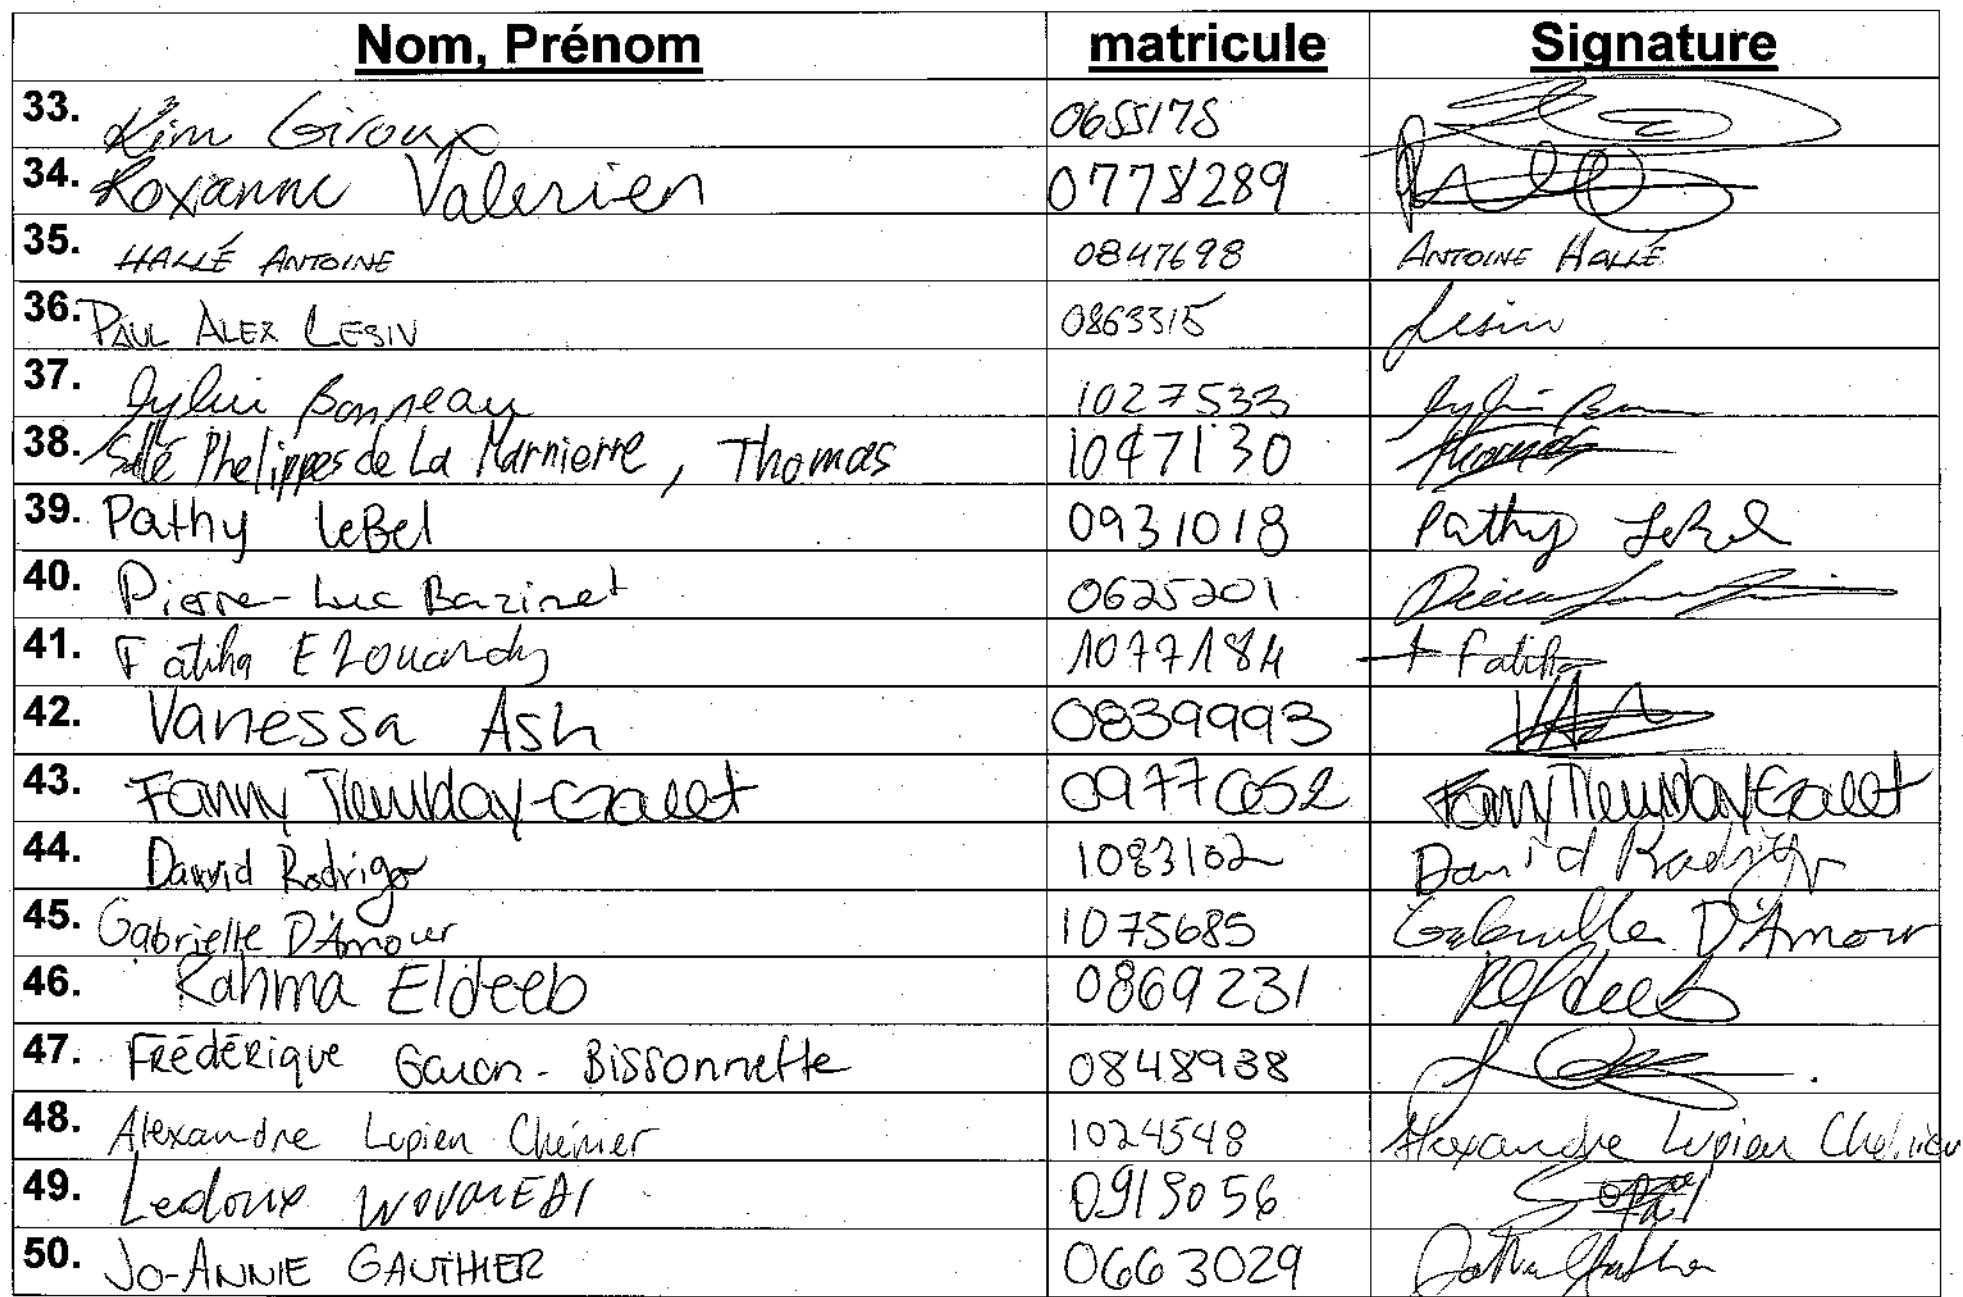 Nom, Prénom matricule Signature
33. Kim Giroux 0655175
34. Roxanne Valerien 0778289
35. HALLÉ ANTOINE 0847698 ANTOINE HALLÉ
36. PAUL ALEX LESIV 0863315 Lesiv
37. Sylvie Bonneau 1027533 Sylvie
38. Sallé Phelippes de La Marnierre, Thomas 1047130 Thomas
39. Pathy LeBel 0931018 Pathy LeBel
40. Pierre-Luc Bazinet 0625201
41. Fatiha 1077184 Fatiha
42. Vanessa Ash 0839993
43. Fanny 0977052 Fanny
44. David Rodrigo 1083102 David Rodrigo
45. Gabrielle D'Amour 1075685 Gabrielle D'Amour
46. Rahma Eldeeb 0869231 REldeeb
47. FRÉDÉRIQUE Garon-Bissonnette 0848938
48. Alexandre Lupien Chénier 1024548 Alexandre Lupien Chénier
49. Ledoux 0919056
50. JO-ANNIE GAUTHIER 0663029